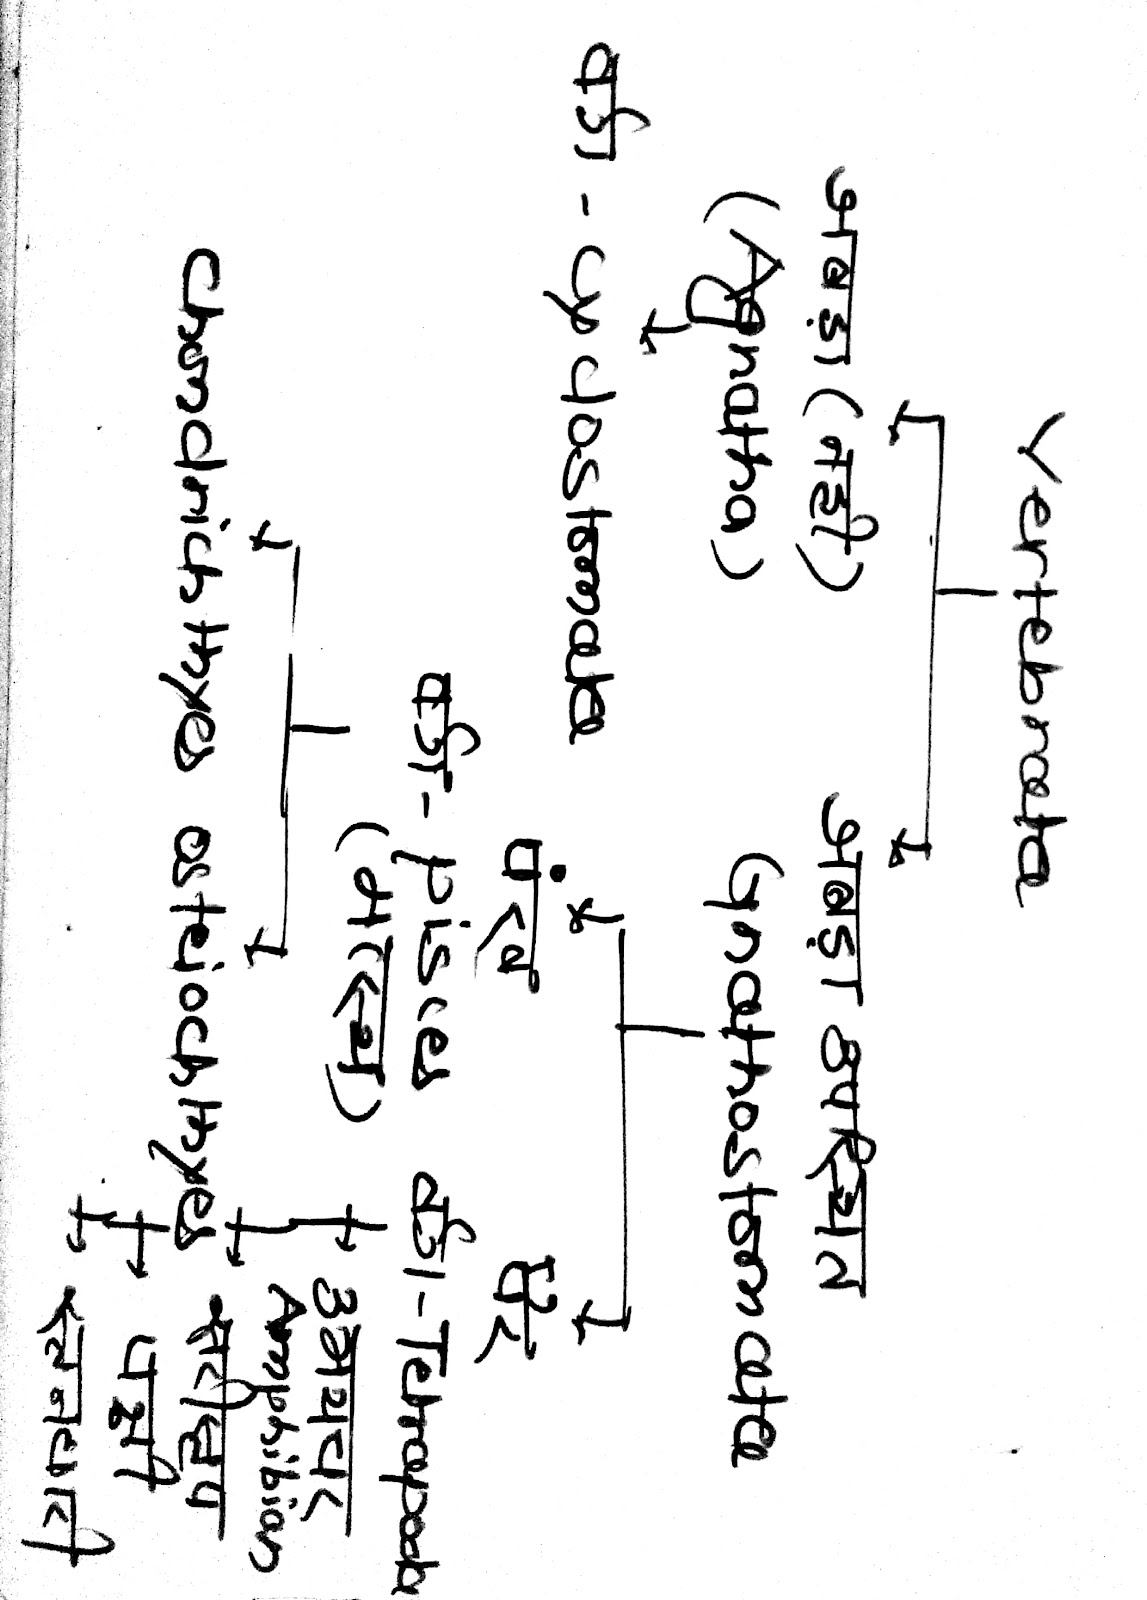 Vertebrata
जबड़ा (नही)
(Agnatha)
जबड़ा उपस्थित
Gnathostomata
वर्ग - cyclostomata
पंख
पैर
वर्ग - pisces
(मत्स्य)
वर्ग - Tetrapoda
chomdrichthyes
osteiochthyes
उभयचर
Amphibian
सरीसृप
पक्षी
स्तनधारी